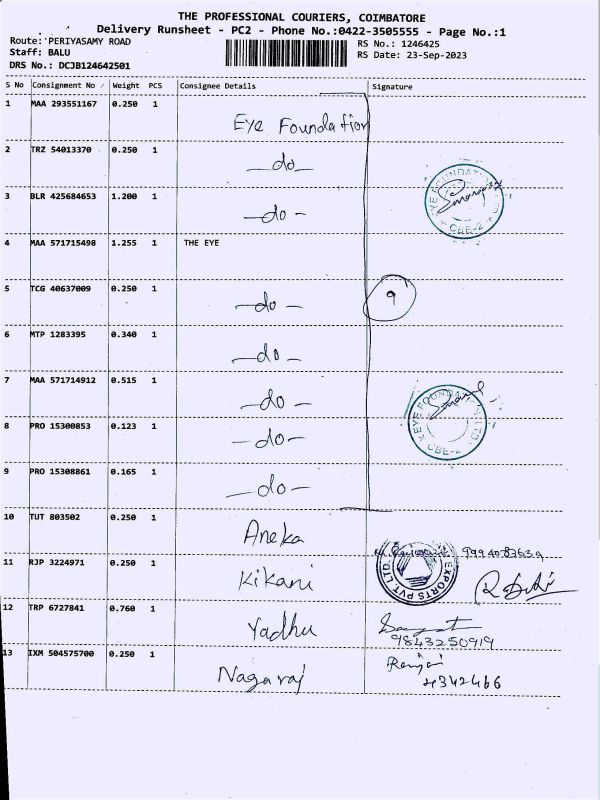 THE PROFESSIONAL COURIERS, COIMBATORE
Delivery Runsheet - PC2 - Phone No.:0422-3505555 - Page No.:1
Route: PERIYASAMY ROAD RS No.: 1246425
Staff: BALU RS Date: 23-Sep-2023
DRS No.: DCJB124642501
S No Consignment No Weight PCS Consignee Details Signature
1 MAA 293551167 0.250 1 Eye Foundation
2 TRZ 54013370 0.250 1 —do—
3 BLR 425684653 1.200 1 —do—
EYE FOUNDATION
CBE-2
4 MAA 571715498 1.255 1 THE EYE
5 TCG 40637009 0.250 1 —do— 9
6 MTP 1283395 0.340 1 —do—
7 MAA 571714912 0.515 1 —do—
8 PRO 15300853 0.123 1 —do—
EYE FOUNDATION LTD
CBE-2
9 PRO 15308861 0.165 1 —do—
10 TUT 803502 0.250 1 Aneka
EXPORTS PVT. LTD.
11 RJP 3224971 0.250 1 Kikani
12 TRP 6727841 0.760 1 Yadhu
9843250919
13 IXM 504575700 0.250 1 Nagaraj
4342466